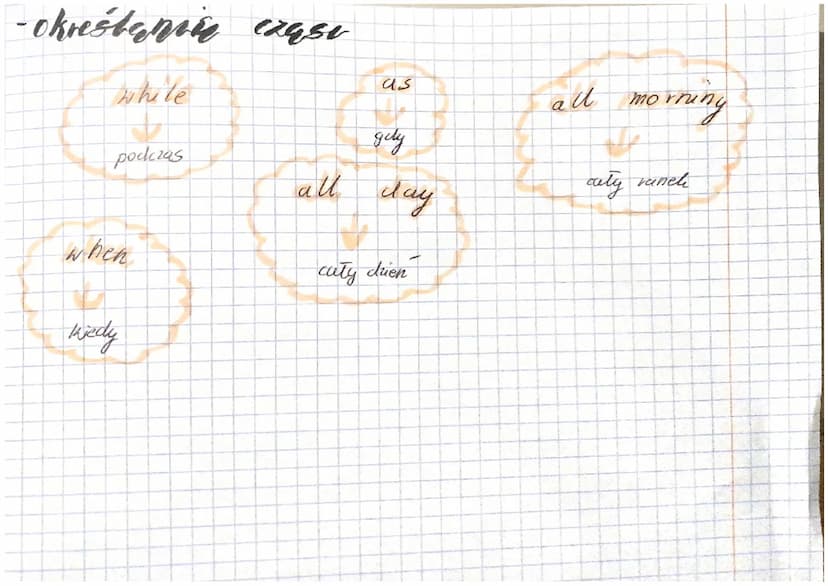 - określania czasu
while
podczas
as
gdy
all morning
cały ranek
all day
cały dzień
when
kiedy